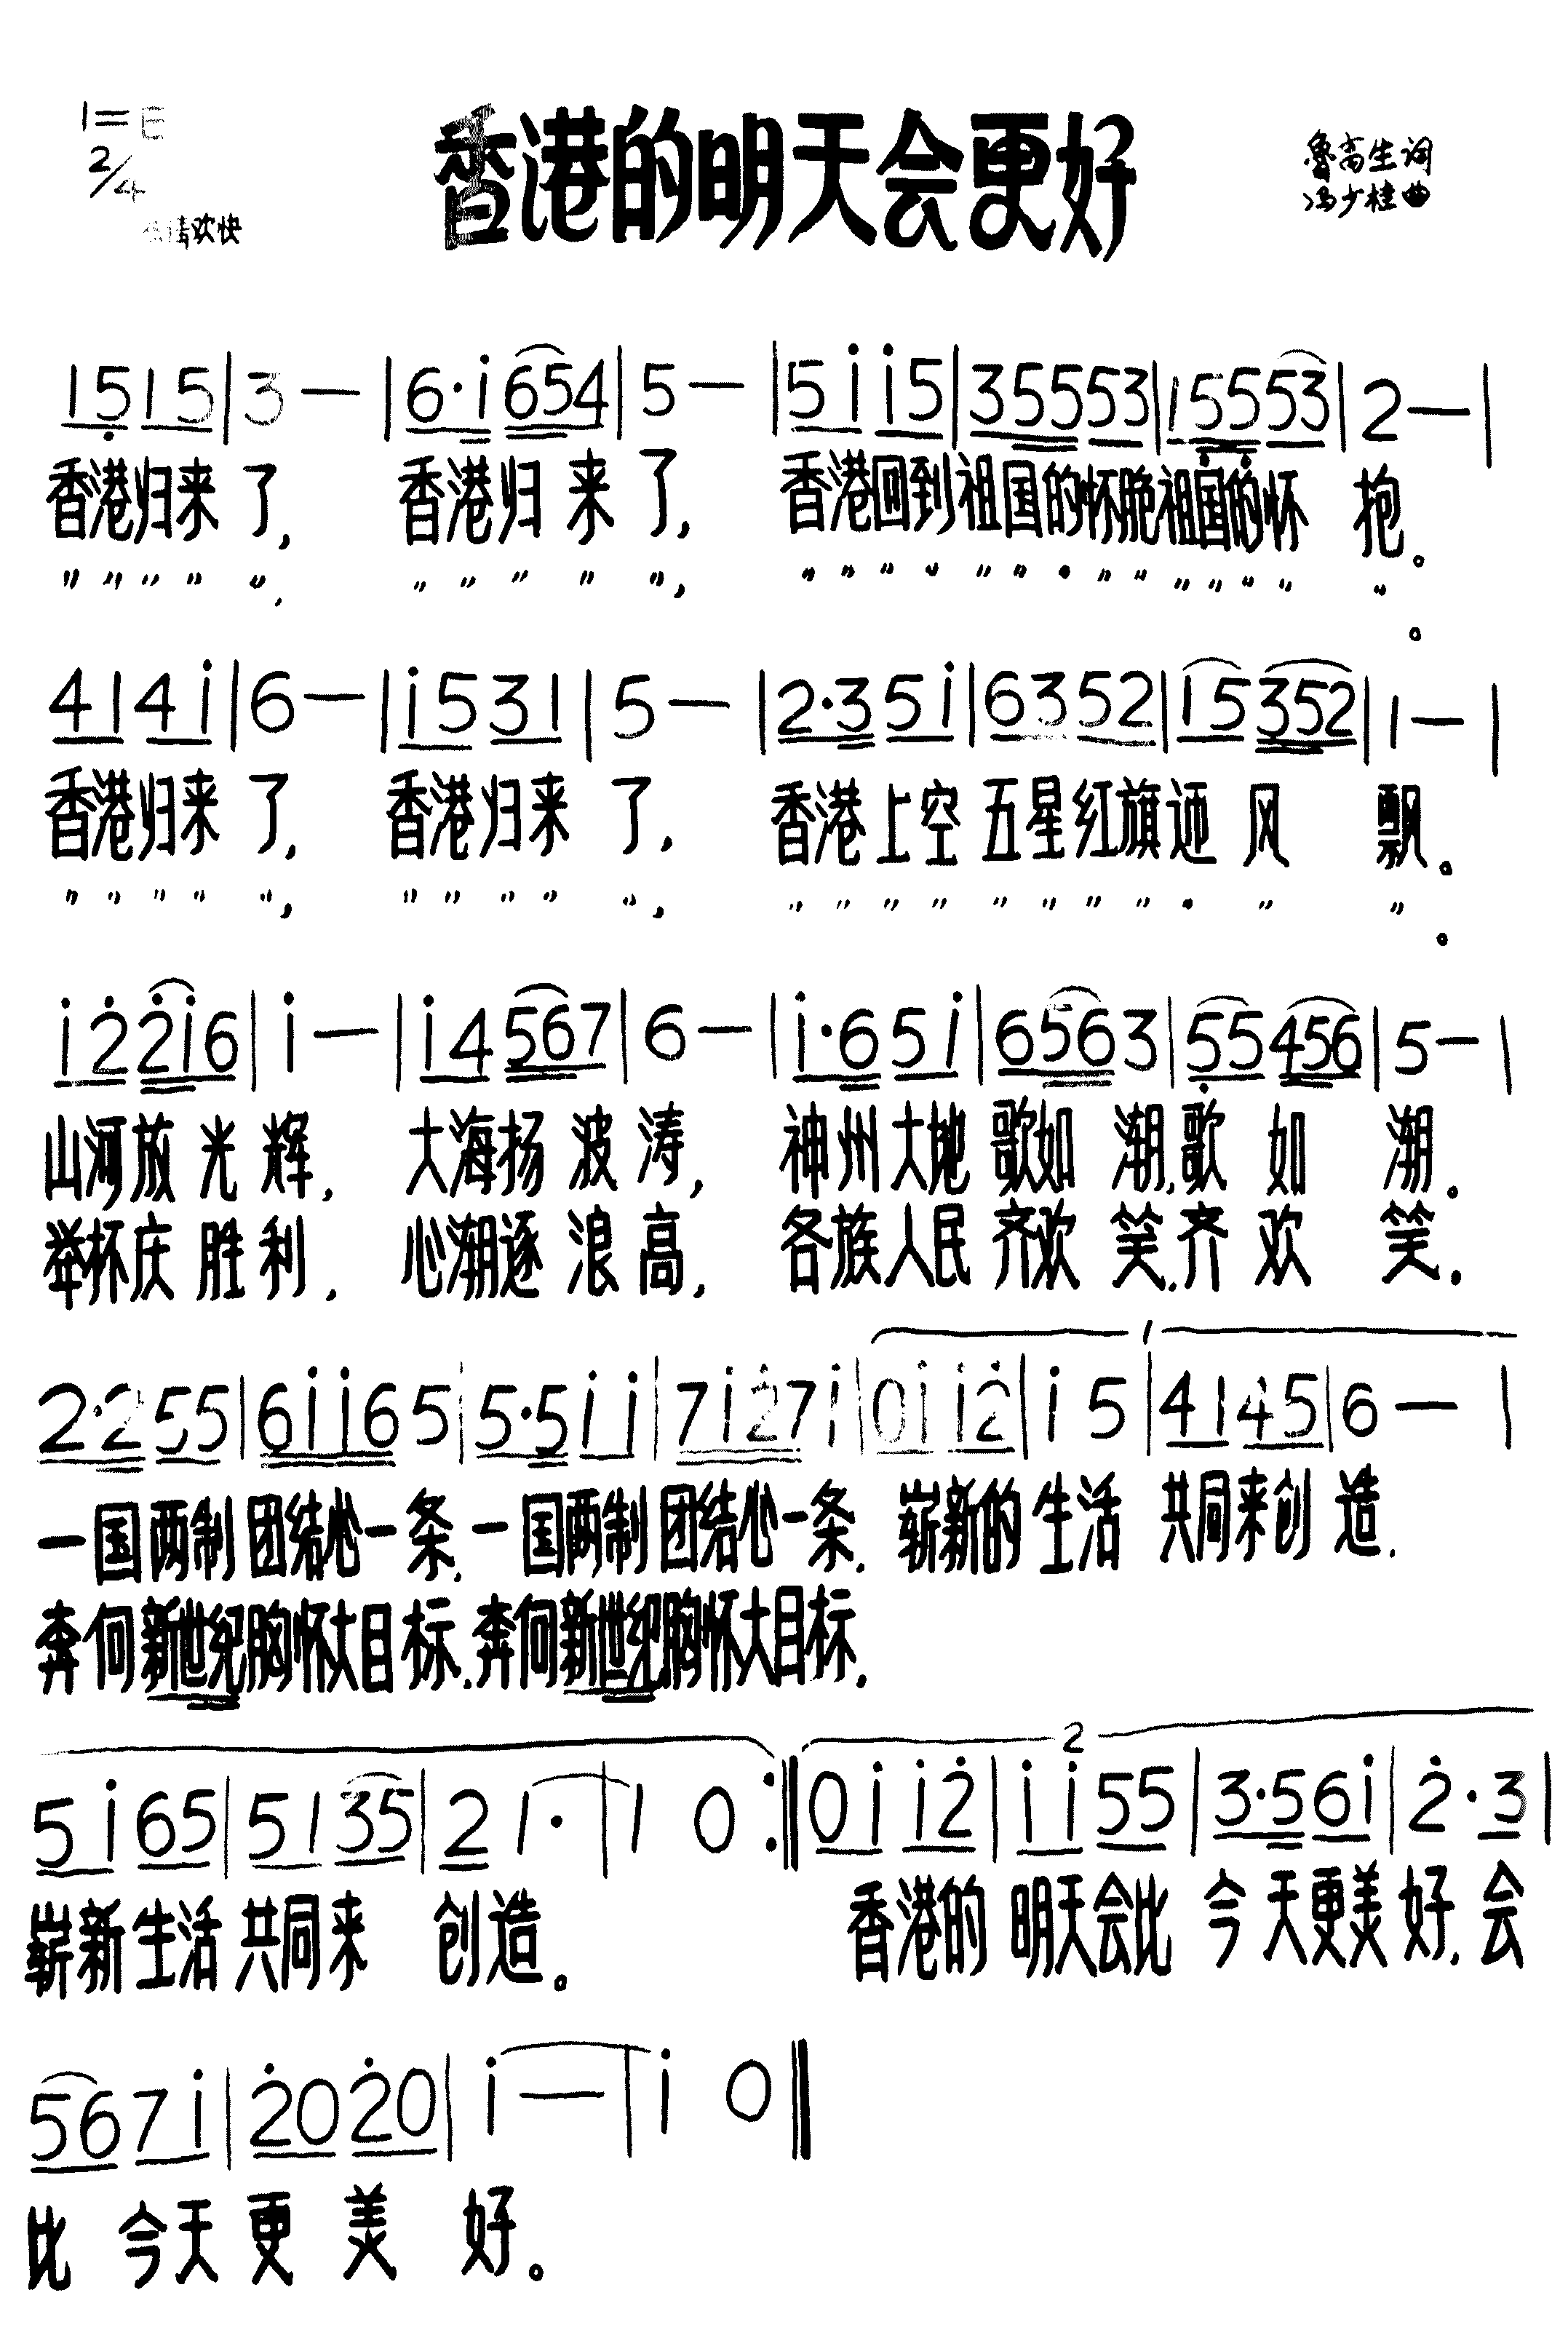 1=E
2/4
情欢快
香港的明天会更好
鲁高生词
冯少桂曲
1 5 1 5 | 3 — | 6· i 6 5 4 | 5 — | 5 i i 5 | 3 5 5 5 3 | 1 5 5 5 3 | 2 — |
香港归来了, 香港归来了, 香港回到祖国的怀抱祖国的怀抱。
〃〃〃〃〃, 〃〃〃〃〃, 〃〃〃〃〃〃〃〃〃〃〃〃〃〃。
4 1 4 i | 6 — | i 5 3 1 | 5 — | 2· 3 5 i | 6 3 5 2 | 1 5 3 5 2 | 1 — |
香港归来了, 香港归来了, 香港上空五星红旗迎风飘。
〃〃〃〃〃, 〃〃〃〃〃, 〃〃〃〃〃〃〃〃〃〃〃。
i 2̇ 2̇ i 6 | i — | i 4 5 6 7 | 6 — | i· 6 5 i | 6 5 6 3 | 5 5 4 5 6 | 5 — |
山河放光辉, 大海扬波涛, 神州大地歌如潮,歌如潮。
举杯庆胜利, 心潮逐浪高, 各族人民齐欢笑,齐欢笑.
1
2· 2 5 5 | 6 i i 6 5 | 5· 5 i i | 7 i 2̇ 7 i | 0 i i 2̇ | i 5 | 4 1 4 5 | 6 — |
一国两制团结心一条,一国两制团结心一条, 崭新的生活共同来创造.
奔向新世纪胸怀大目标,奔向新世纪胸怀大目标,
2
5 i 6 5 | 5 1 3 5 | 2 1· | 1 0 :‖ 0 i i 2̇ | i i 5 5 | 3· 5 6 i | 2̇ · 3 |
崭新生活共同来创造。 香港的明天会比今天更美好,会
5 6 7 i | 2̇ 0 2̇ 0 | i — | i 0 ‖
比今天更美好。